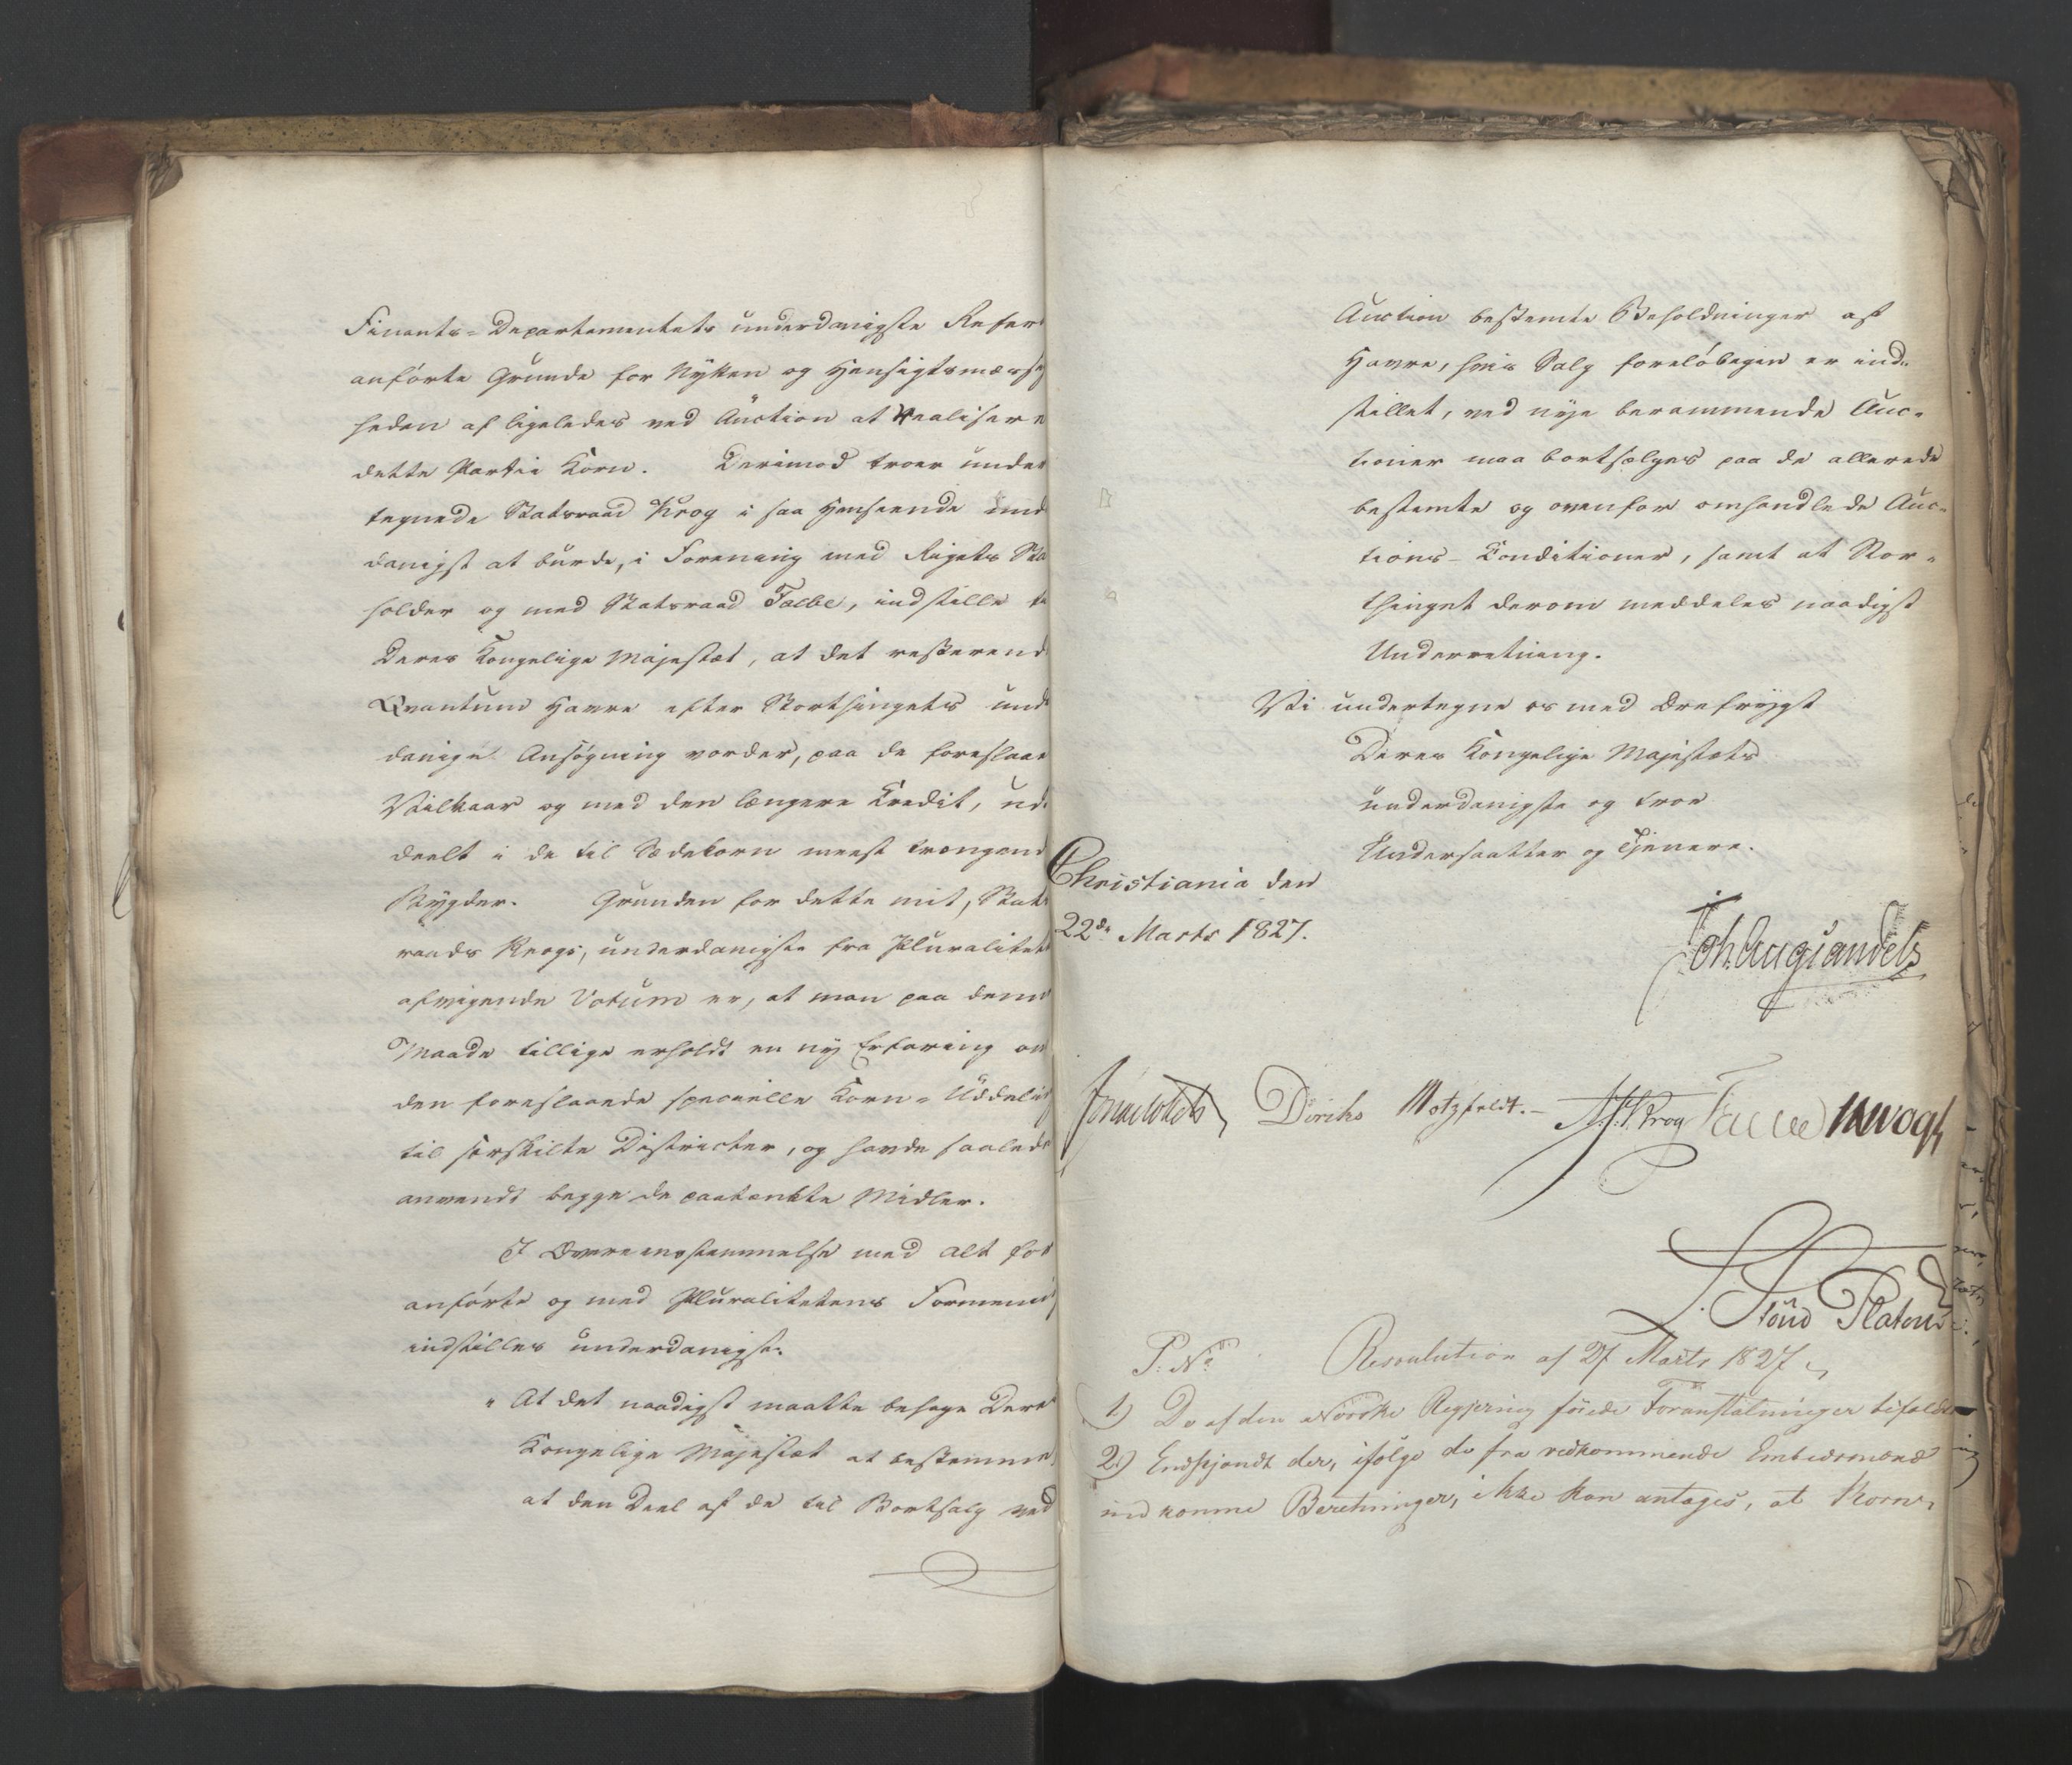 Finants-Departementets underdanigste Refer
anförte Grunde for Nytten og Hensigtsmæssig
heden af ligeledes ved Auction at realisere
dette Partie Korn. Derimod troer under
tegnede Statsraad Krog i saa Henseende und
danigst at burde, i Forening med Rigets Stat
holder og med Statsraad Falbe, indstille til
Deres Kongelige Majestæt, at det resterend
Qvantum Havre efter Storthingets und
danige Ansögning vorder, paa de foreslaae
Vilkaar og med den længere Credit, ud
deelt i de til Sædekorn meest trængend
Bygder. Grunden for dette mit, Stats
raads Krogs, underdanigste fra Pluralitet
afvigende Votum er, at man paa denne
Maade tillige erholdt en ny Erfaring om
den foreslaaede specielle Korn-Uddeling
til særskilte Districter, og havde saaled
anvendt begge de paatænkte Midler.
I Overeensstemmelse med alt for
anförte og med Pluralitetens Formening
indstilles underdanigst:
" At det naadigst maatte behage Deres
Kongelige Majestæt at bestemme,
at den Deel af de til Bortsalg ved
Auction bestemte Beholdninger af
Havre, hvis Salg foreløbigen er ind-
stillet, ved nye berammende Auc-
tioner maa bortsælges paa de allerede
bestemte og ovenfor omhandlede Auc-
tions-Conditioner, samt at Stor-
thinget derom meddeles naadigst
Underretning.
Vi undertegne os med Ærefrygt
Deres Kongelige Majestæts
underdanigste og troe
Undersaatter og Tjenere.
Christiania den
22de Marts 1827.
Joh. Aug. Sandels
Diriks Motzfeldt. Krog Falbe
Platou
P: No Resoulution af 27 Marts 1827
1) De af den Norske Regjering föiede Foranstaltninger bifaldes
2) Endskjøndt der, ifölge de fra vedkommende Embedsmænd
ind komne Beretninger, ikke kan antages, at Korn,